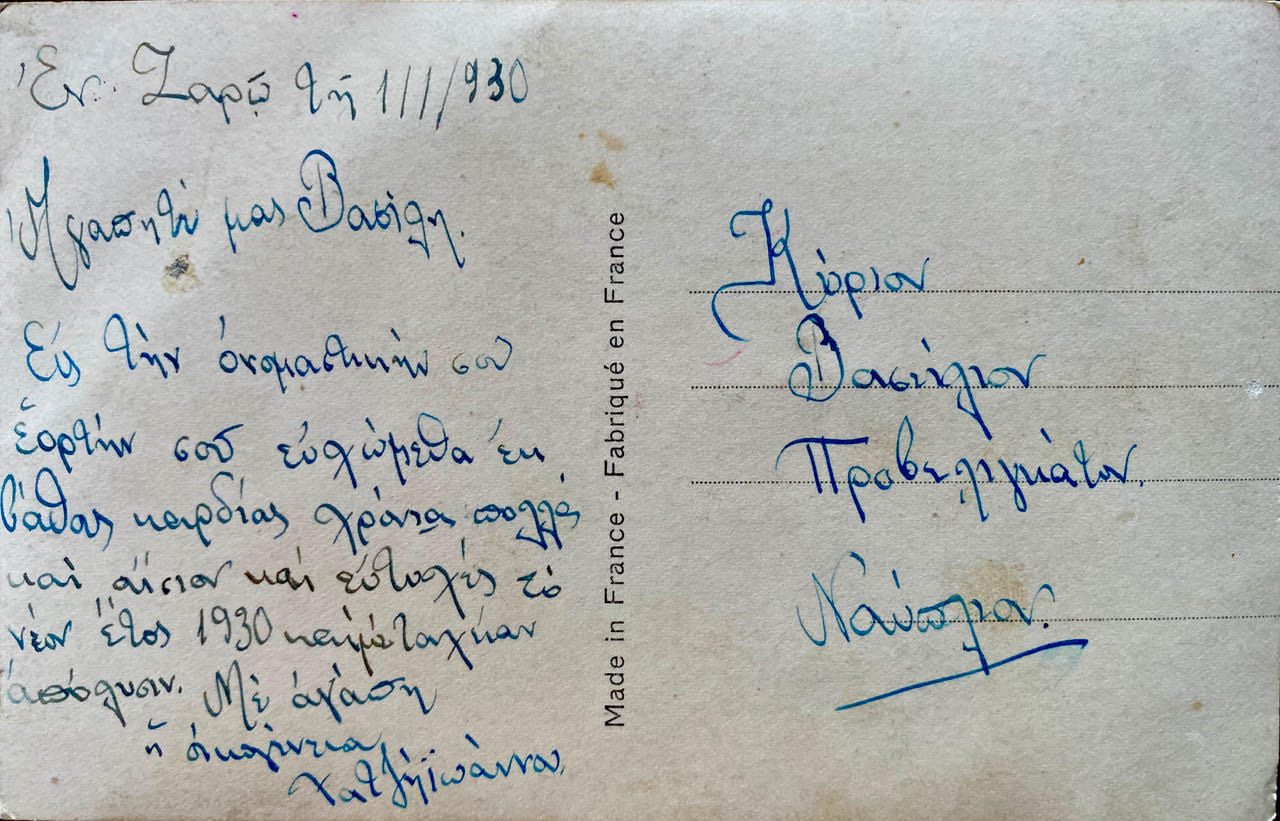 Ἐν Ζαρῷ τῇ 1/1/930
Ἀγαπητέ μας Βασίλη.
Εἰς τὴν ὀνομαστικήν σου
ἑορτήν σοῦ εὐχώμεθα ἐκ
βάθος καρδίας χρόνια πολλά
καὶ αἴσιον καὶ εὐτυχές τὸ
νέον ἔτος 1930 καὶ
ἀπόλυσιν. Μὲ ἀγάπη
ἡ οἰκογένεια
Χατζηϊωάννου.
Made in France - Fabriqué en France
Κύριον
Βασίλιον
Προβελιγκάτον.
Ναύπλιον.